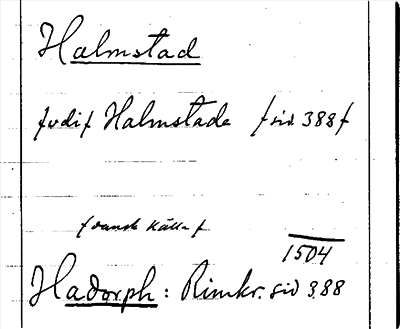 Halmstad
/vdi/ Halmstade /sid. 388/
/dansk källa/
1504
Hadorph: Rimkr. sid 388